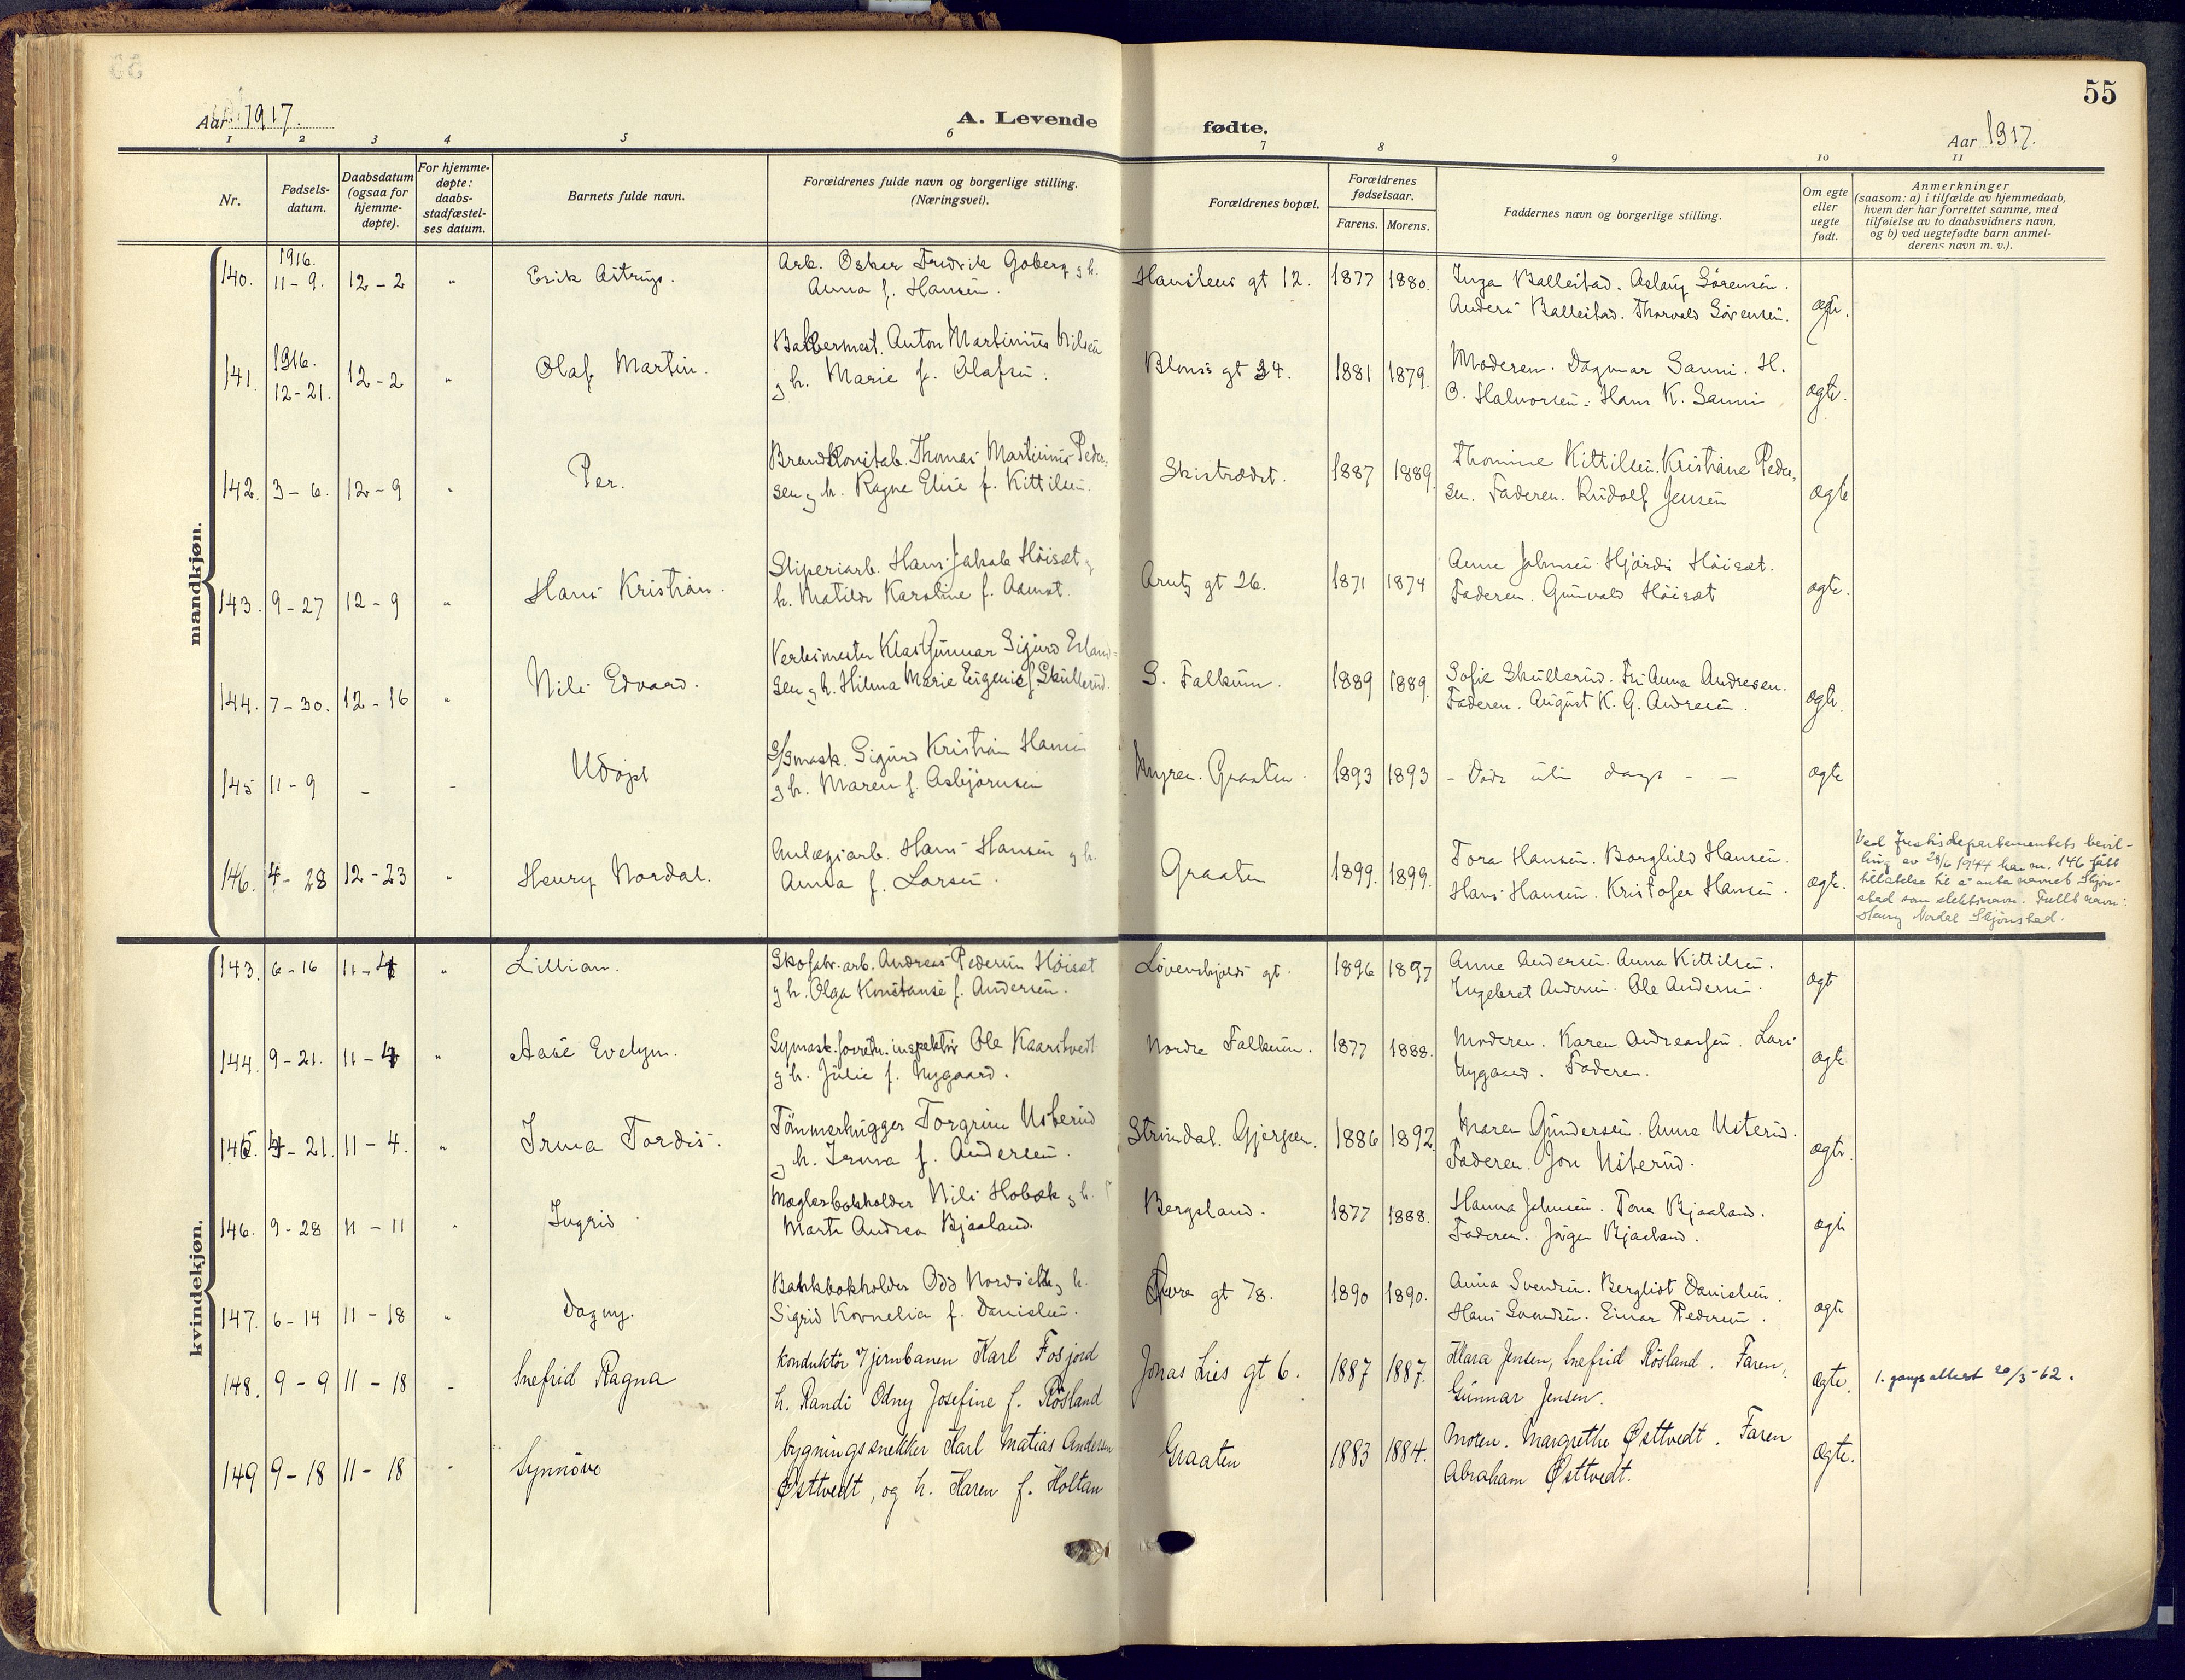 55
Aar 1917.
A. Levende fødte.
Aar 1917.
1 2 3 4 5 6 7 8 9 10 11
Nr.
Fødsels-
datum.
Daabsdatum
(ogsaa for
hjemme-
døpte).
For hjemme-
døpte:
daabs-
stadfæstel-
ses datum.
Barnets fulde navn.
Forældrenes fulde navn og borgerlige stilling.
(Næringsvei).
Forældrenes bopæl.
Forældrenes
fødselsaar.
Farens. Morens.
Faddernes navn og borgerlige stilling.
Om egte
eller
uegte
født.
Anmerkninger
(saasom: a) i tilfælde av hjemmedaab,
hvem der har forrettet samme, med
tilføielse av to daabsvidners navn,
og b) ved uegtefødte barn anmel-
derens navn m. v.).
mandkjøn.
140. 1916. 11-9. 12-2 " Erik Astrup.
Arb. Oskar Fredrik Goberg g h.
Anna f. Hansen.
gt 12. 1877 1880.
Inga Ballestad. Aslaug Sørensen.
Anders Ballestad. Thorvald Sørensen.
ægte.
141. 1916. 12-21. 12-2 " Olaf Martin.
Anton Martinius Nilsen
g h. Marie f. Olafsen.
Bloms gt 34. 1881 1879.
Moderen. Dagmar Sanni. H.
O. Halvorsen. Hans K. Sanni
ægte.
142. 3-6. 12-9 " Per.
Brandkonstab. Thomas Martinius Peder-
sen g h. Ragna Elise f. Kittilsen.
Skistrædet. 1887 1889.
Thomine Kittilsen. Kristiane Peder-
sen. Faderen. Rudolf Jensen
ægte
143. 9-27 12-9 " Hans Kristian.
Sliperiarb. Hans Jakob Höisæt g
h. Matilde Karoline f. Aamot.
Arntz gt 26. 1871 1874
Anna Johnsen. Hjördis Höisæt.
Faderen. Gunvald Höisæt
ægte.
144. 7-30. 12-16 " Nils Edvard.
Verksmester Klas Gunnar Sigurd Erland-
sen g h. Hilma Marie Eugenie f. Skullerud.
S. Falkum. 1889 1889.
Sofie Skullerud. Fru Anna Andresen.
Faderen. August K. G. Andresen.
ægte.
145 11-9 - - Udøpt
Sigurd Kristian Hansen
g h. Maren f. Asbjörnsen
Myren. Graaten. 1893 1893
- Døde uten daap - -
ægte
146. 4-28 12-23 " Henry Nordal.
Anlægsarb. Hans Hansen g h.
Anna f. Larsen.
Graaten 1899. 1899.
Tora Hansen. Borghild Hansen.
Hans Hansen. Kristofer Hansen.
ægte.
Ved Justisdepartementets bevil-
ling av 28/6 1944 har nr. 146 fått
tillatelse til å anta navnet Skjøn-
stad som slektsnavn. Fullt navn:
Henry Nordal Skjønstad.
kvindekjøn.
143. 6-16 11-4 " Lillian.
Skofabr. arb. Andreas Pedersen Höisæt
g h. Olga Konstanse f. Andersen.
Løvenskjolds gt. 1896 1897
Anna Andersen. Anna Kittilsen.
Ingebret Andersen. Ole Andersen.
ægte
144. 9-21. 11-4 " Aase Evelyn.
Symask. forretn. inspektör Ole Kaarstvedt
g h. Julie f. Nygaard.
Nordre Falkum. 1877 1888.
Moderen. Karen Andreassen. Lars
Nygaard. Faderen.
ægte
145. 4-21. 11-4. " Irma Tordis.
Tömmerhugger Torgrim Usterud
g h. Irma f. Andersen.
Strömdal. Gjerpen. 1886 1892
Maren Gundersen. Anna Usterud.
Faderen. Jon Usterud.
ægte.
146. 9-28 11-11 " Ingrid.
Mæglerbokholder Nils Hobæk g h.
Marta Andrea Bjaaland.
Bergsland. 1877 1888.
Hanna Johnsen. Tone Bjaaland.
Faderen. Jörgen Bjaaland.
ægte
147. 6-14 11-18 " Dagny.
Bankbokholder Odd Nordseth g h.
Sigrid Kornelia f. Danielsen.
gt 78. 1890 1890.
Anna Svendsen. Bergliot Danielsen.
Hans Svendsen. Einar Pedersen.
ægte
148. 9-9 11-18 - Snefrid Ragna
konduktör v/jernbanen Karl Fosjord
h. Randi Odny Josefine f. Rösland
Jonas Lies gt 6. 1887 1887.
Klara Jensen, Snefrid Rösland. Faren,
Gunnar Jensen.
ægte.
1. gangs attest 20/3-62.
149 9-18 11-18 - Synnöve
bygningssnekker Karl Matias Andersen
Østtvedt, og h. Karen f. Holtan
Graaten 1883 1884.
Moren. Margrethe Østtvedt. Faren
Abraham Østtvedt.
ægte.